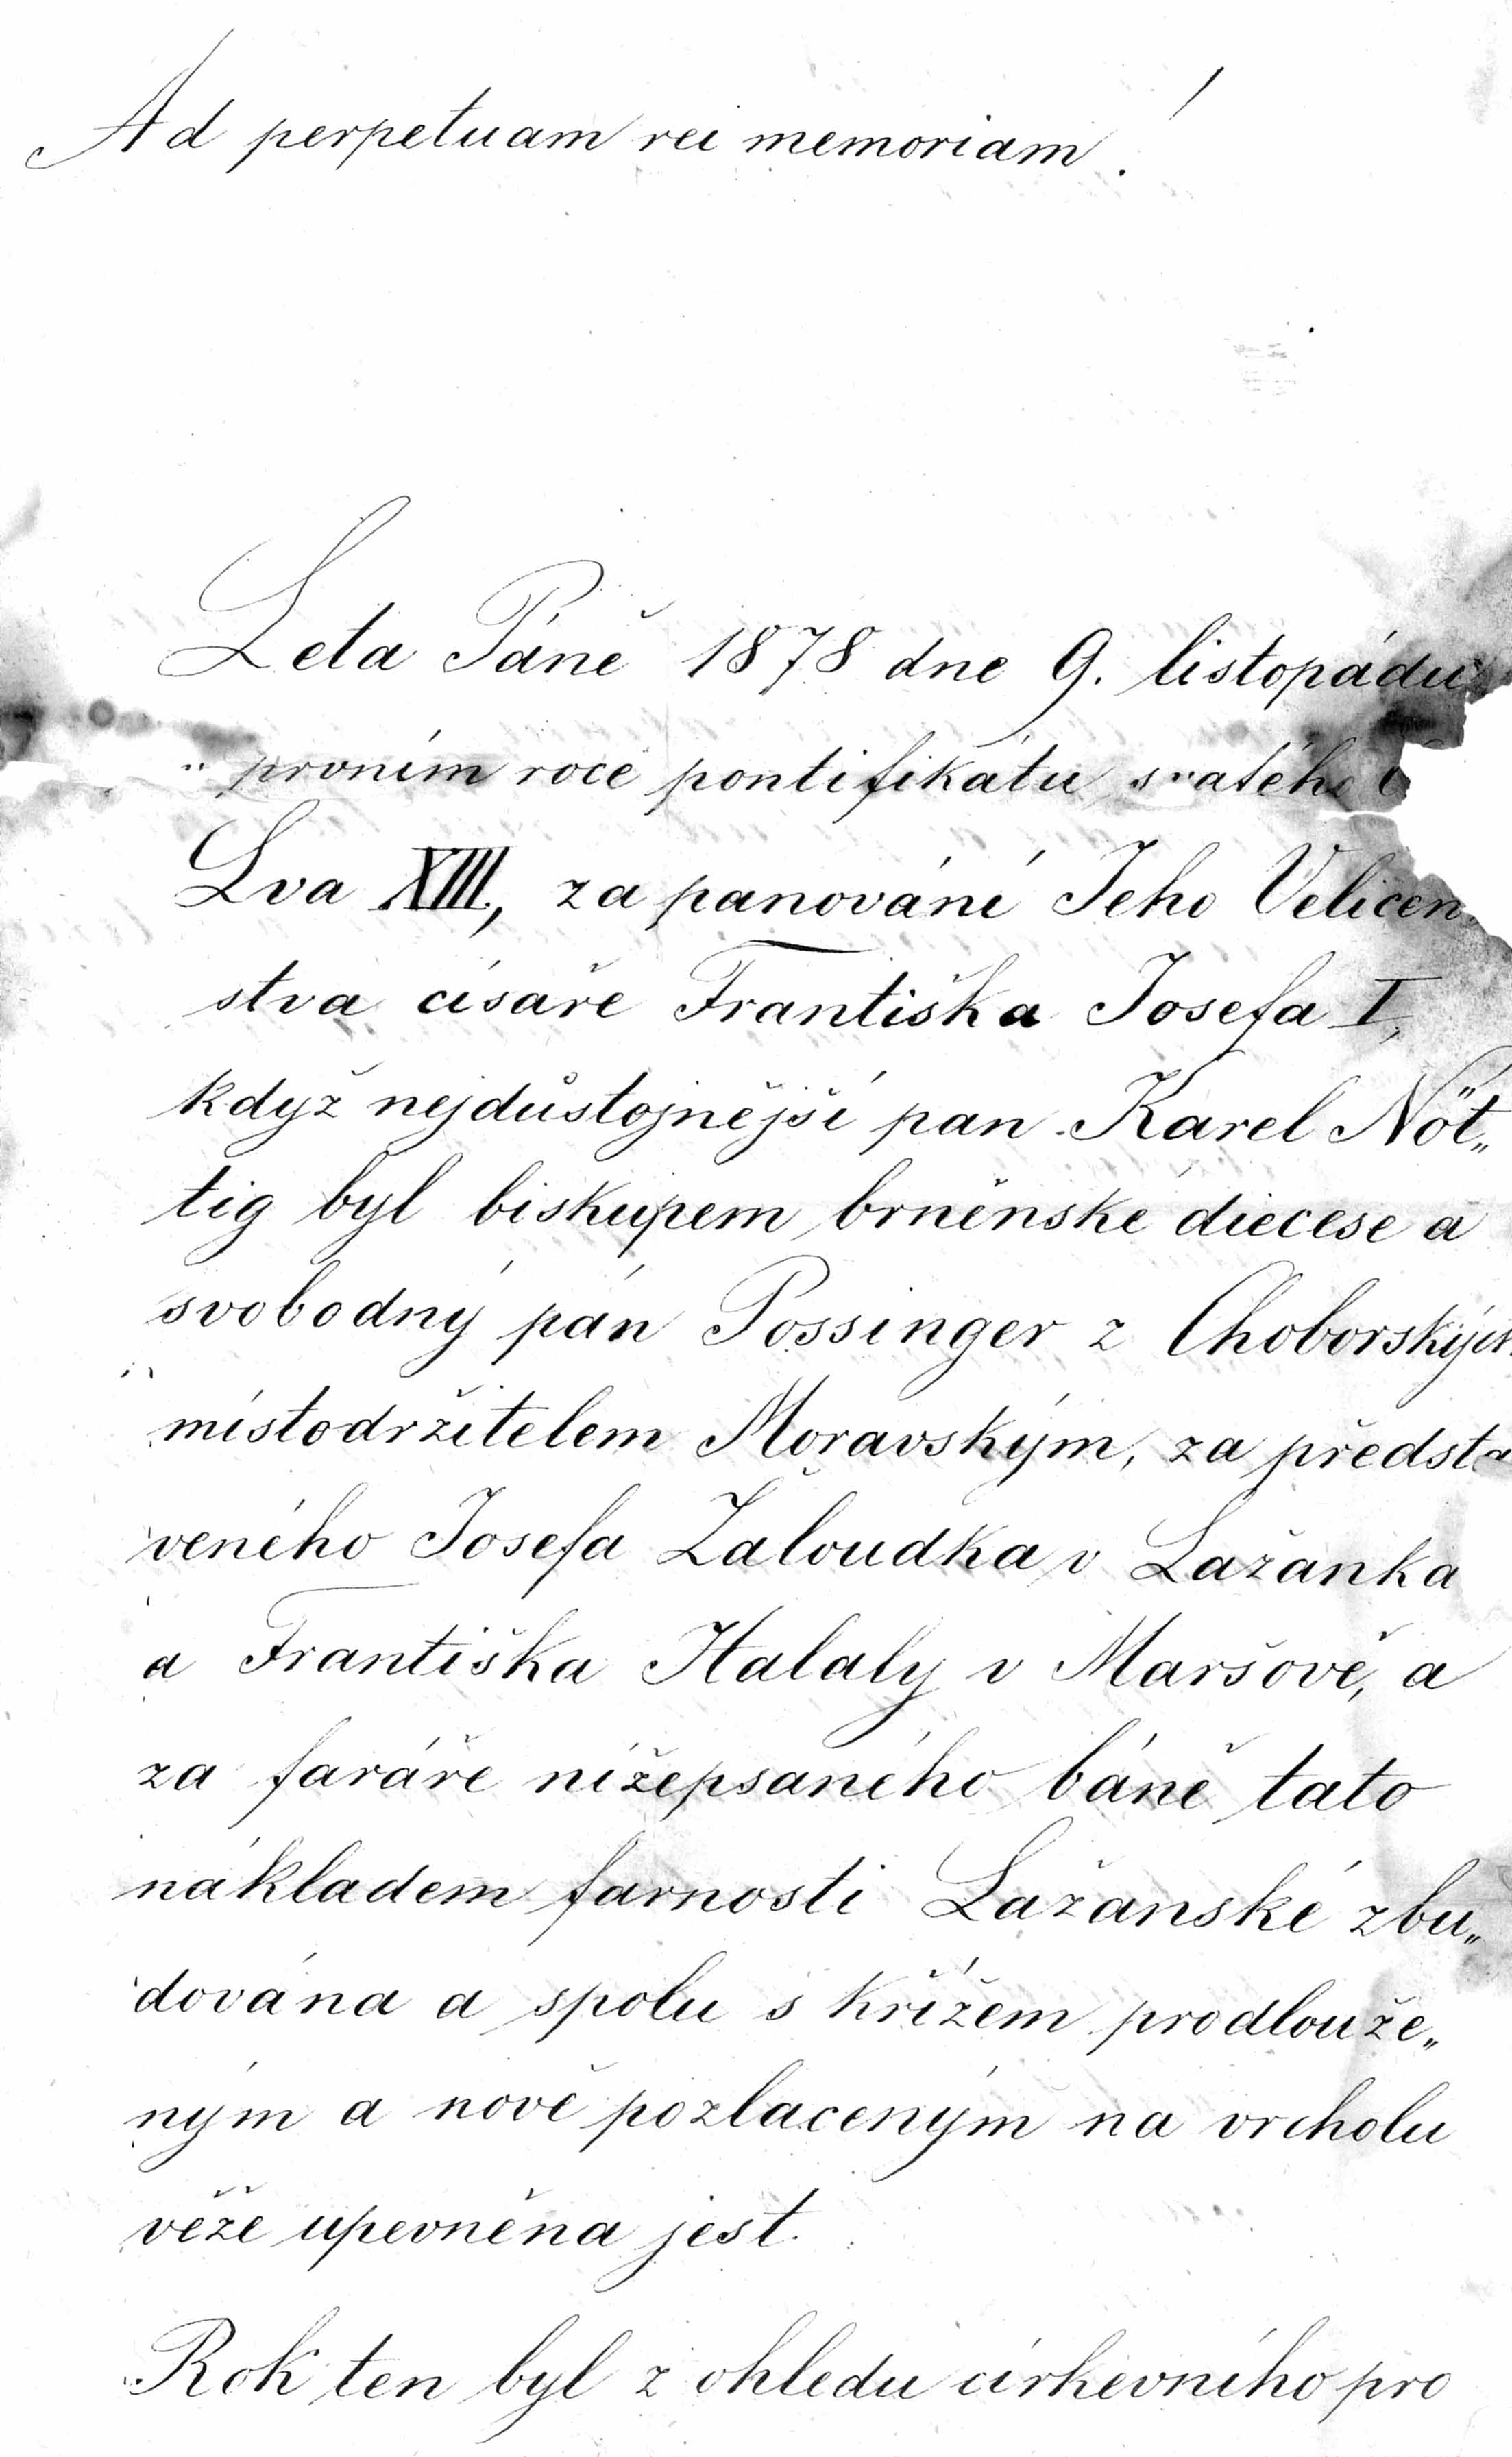 Ad perpetuam rei memoriam!
Leta Páně 1878 dne 9. listopádu
prvním roce pontifikátu svatého
Lva XIII., za panování Jeho Veličen„
stva císaře Františka Josefa I,
když nejdůstojnější pan Karel Nöt„
tig byl biskupem brněnské diecese a
svobodný pán Possinger z Choborských
místodržitelem Moravským, za předsta
veného Josefa Žaloudka v Lažánka
a Františka Halaly v Maršově, a
za faráře nížepsaného báně tato
nákladem farnosti Lažanské zbu„
dována a spolu s křížem prodlouže„
ným a nově pozlaceným na vrcholu
věže upevněna jest.
Rok ten byl z ohledu církevního pro